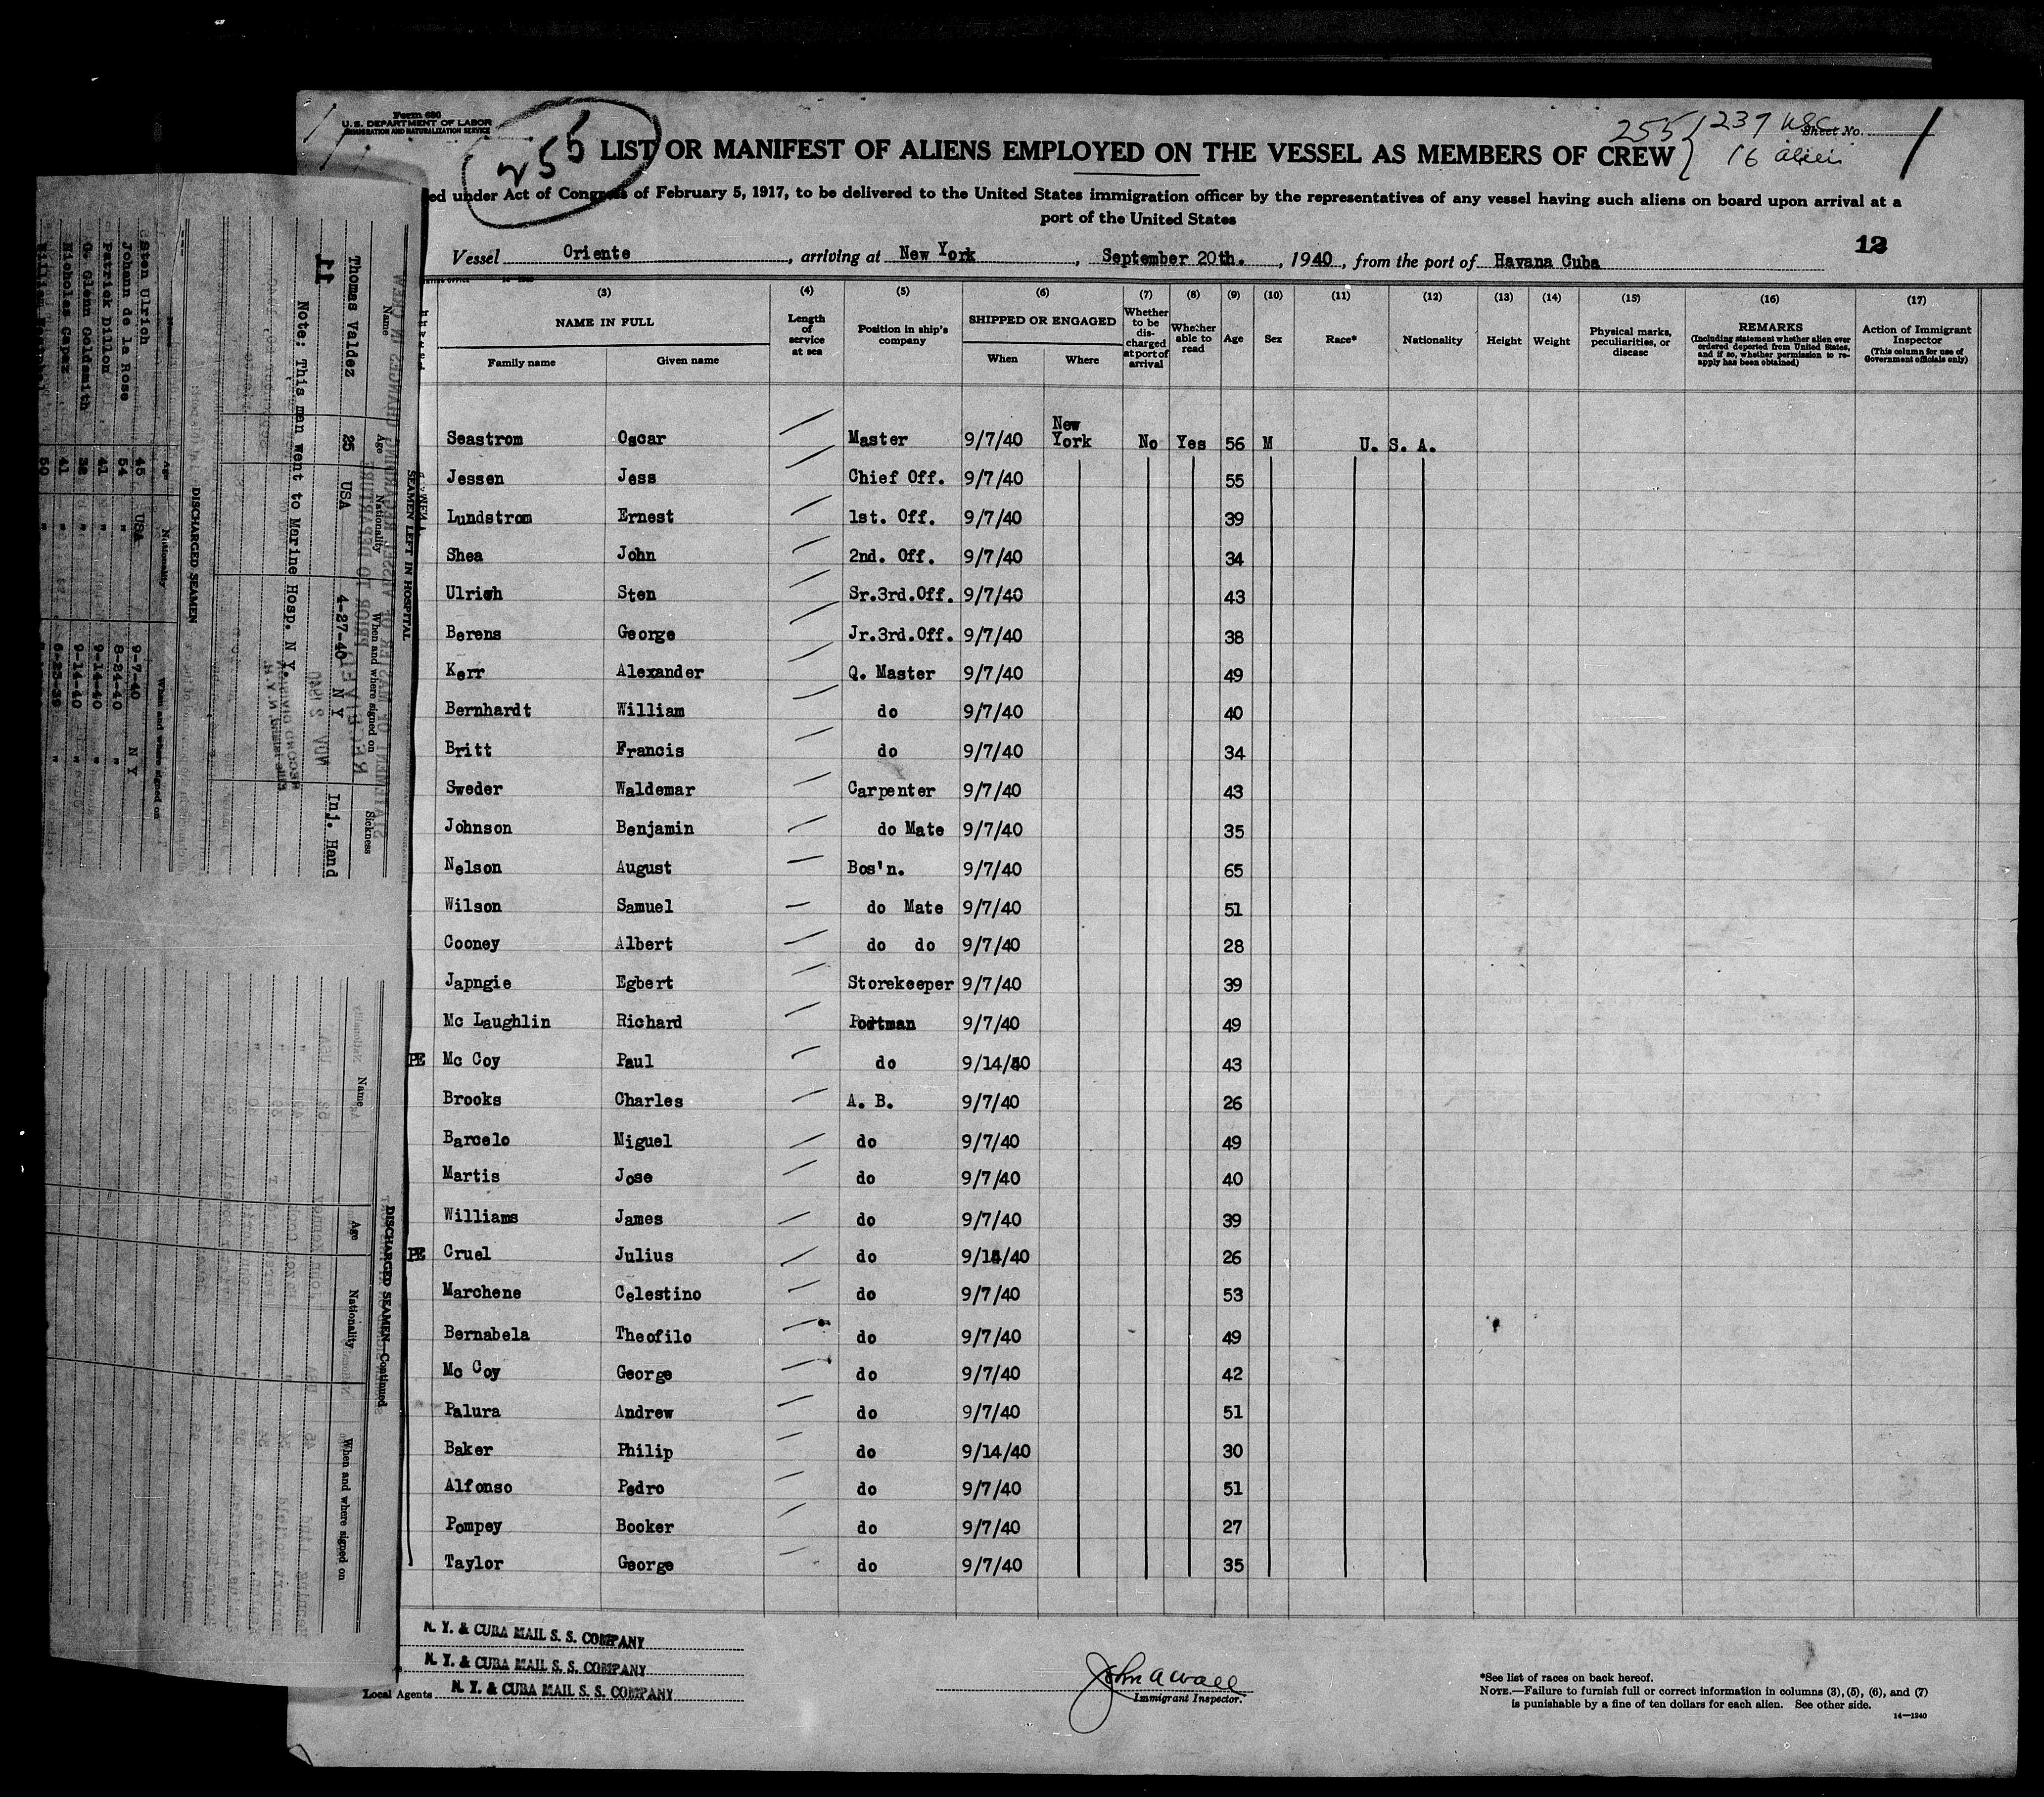 Form 680
U. S. DEPARTMENT OF LABOR
IMMIGRATION AND NATURALIZATION SERVICE
255
255 { 237 USC
16 alien
Sheet No. 1
LIST OR MANIFEST OF ALIENS EMPLOYED ON THE VESSEL AS MEMBERS OF CREW
ed under Act of Congress of February 5, 1917, to be delivered to the United States immigration officer by the representatives of any vessel having such aliens on board upon arrival at a
port of the United States
12
Vessel Oriente, arriving at New York, September 20th., 1940, from the port of Havana Cuba
(3) (4) (5) (6) (7) (8) (9) (10) (11) (12) (13) (14) (15) (16) (17)
NAME IN FULL
Family name Given name
Length of service at sea
Position in ship's company
SHIPPED OR ENGAGED
When Where
Whether to be discharged at port of arrival
Whether able to read
Age
Sex
Race*
Nationality
Height
Weight
Physical marks, peculiarities, or disease
REMARKS
(Including statement whether alien ever ordered deported from United States, and if so, whether permission to reapply has been obtained)
Action of Immigrant Inspector
(This column for use of Government officials only)
Seastrom Oscar Master 9/7/40 New York No Yes 56 M U. S. A.
Jessen Jess Chief Off. 9/7/40 55
Lundstrom Ernest 1st. Off. 9/7/40 39
Shea John 2nd. Off. 9/7/40 34
Ulrich Sten Sr.3rd.Off. 9/7/40 43
Berens George Jr.3rd.Off. 9/7/40 38
Kerr Alexander Q. Master 9/7/40 49
Bernhardt William do 9/7/40 40
Britt Francis do 9/7/40 34
Sweder Waldemar Carpenter 9/7/40 43
Johnson Benjamin do Mate 9/7/40 35
Nelson August Bos'n. 9/7/40 65
Wilson Samuel do Mate 9/7/40 51
Cooney Albert do do 9/7/40 28
Japngie Egbert Storekeeper 9/7/40 39
Mc Laughlin Richard Portman 9/7/40 49
PE Mc Coy Paul do 9/14/40 43
Brooks Charles A. B. 9/7/40 26
Barcelo Miguel do 9/7/40 49
Martis Jose do 9/7/40 40
Williams James do 9/7/40 39
PE Cruel Julius do 9/14/40 26
Marchene Celestino do 9/7/40 53
Bernabela Theofilo do 9/7/40 49
Mc Coy George do 9/7/40 42
Palura Andrew do 9/7/40 51
Baker Philip do 9/14/40 30
Alfonso Pedro do 9/7/40 51
Pompey Booker do 9/7/40 27
Taylor George do 9/7/40 35
N. Y. & CUBA MAIL S. S. COMPANY
N. Y. & CUBA MAIL S. S. COMPANY
Local Agents N. Y. & CUBA MAIL S. S. COMPANY
John A Wall
Immigrant Inspector.
*See list of races on back hereof.
NOTE.—Failure to furnish full or correct information in columns (3), (5), (6), and (7)
is punishable by a fine of ten dollars for each alien. See other side.
14—1240
SEAMEN LEFT IN HOSPITAL
Name Age Nationality When and where signed on Sickness
Thomas Valdez 25 USA 4-27-40 N Y Inj. Hand
11
Note: This man went to Marine Hosp. N Y.
DISCHARGED SEAMEN
Age Nationality When and where signed on
Sten Ulrich 45 USA 9-7-40 N Y
Johann de la Rose 54 " 8-24-40 "
Patrick Dillon 41 " 9-14-40 "
G. Glenn Goldsmith 9-14-40 "
Nicholas Capez 41 " "
50 "
DISCHARGED SEAMEN—Continued
Name Age Nationality When and where signed on